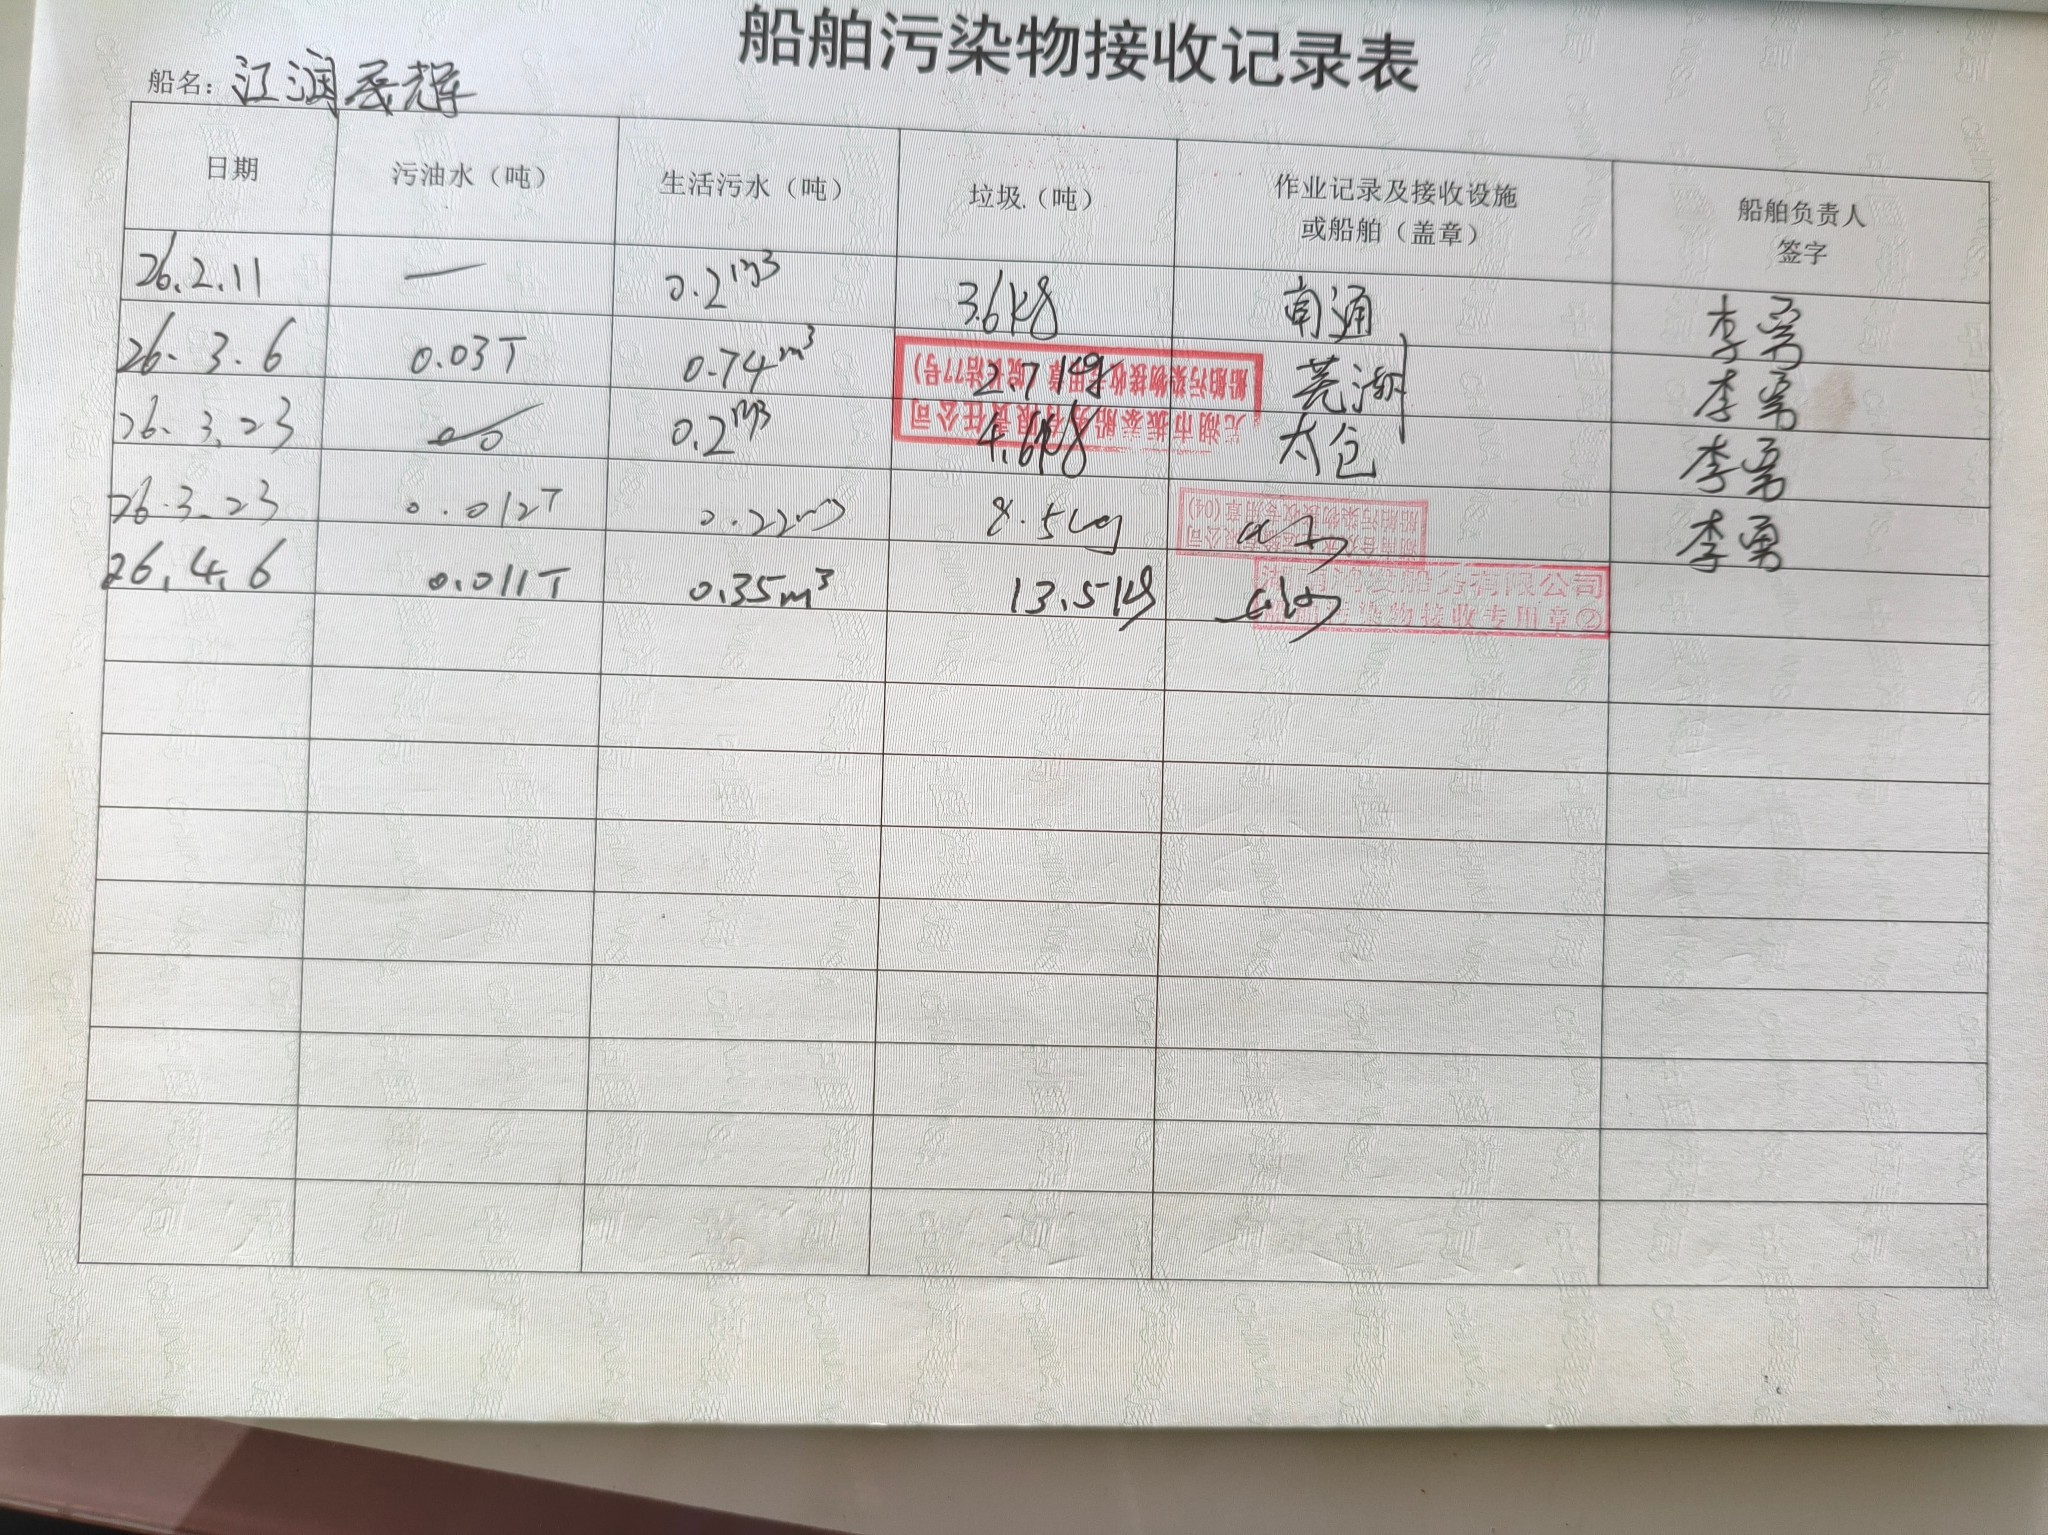 船舶污染物接收记录表
船名：江润辰辉
日期 污油水（吨） 生活污水（吨） 垃圾（吨） 作业记录及接收设施或船舶（盖章） 船舶负责人签字
26.2.11 — 0.2m³ 3.6kg 南通 李勇
26.3.6 0.03T 0.74m³ 2.7kg 芜湖 李勇
芜湖市振泰船务有限责任公司
船舶污染物接收专用章
26.3.23 0.2m³ 4.6kg 太仓 李勇
26.3.23 0.012T 0.22m³ 8.5kg 李勇
船舶污染物接收专用章(04)
26.4.6 0.011T 0.35m³ 13.5kg
船务有限公司
船舶污染物接收专用章②